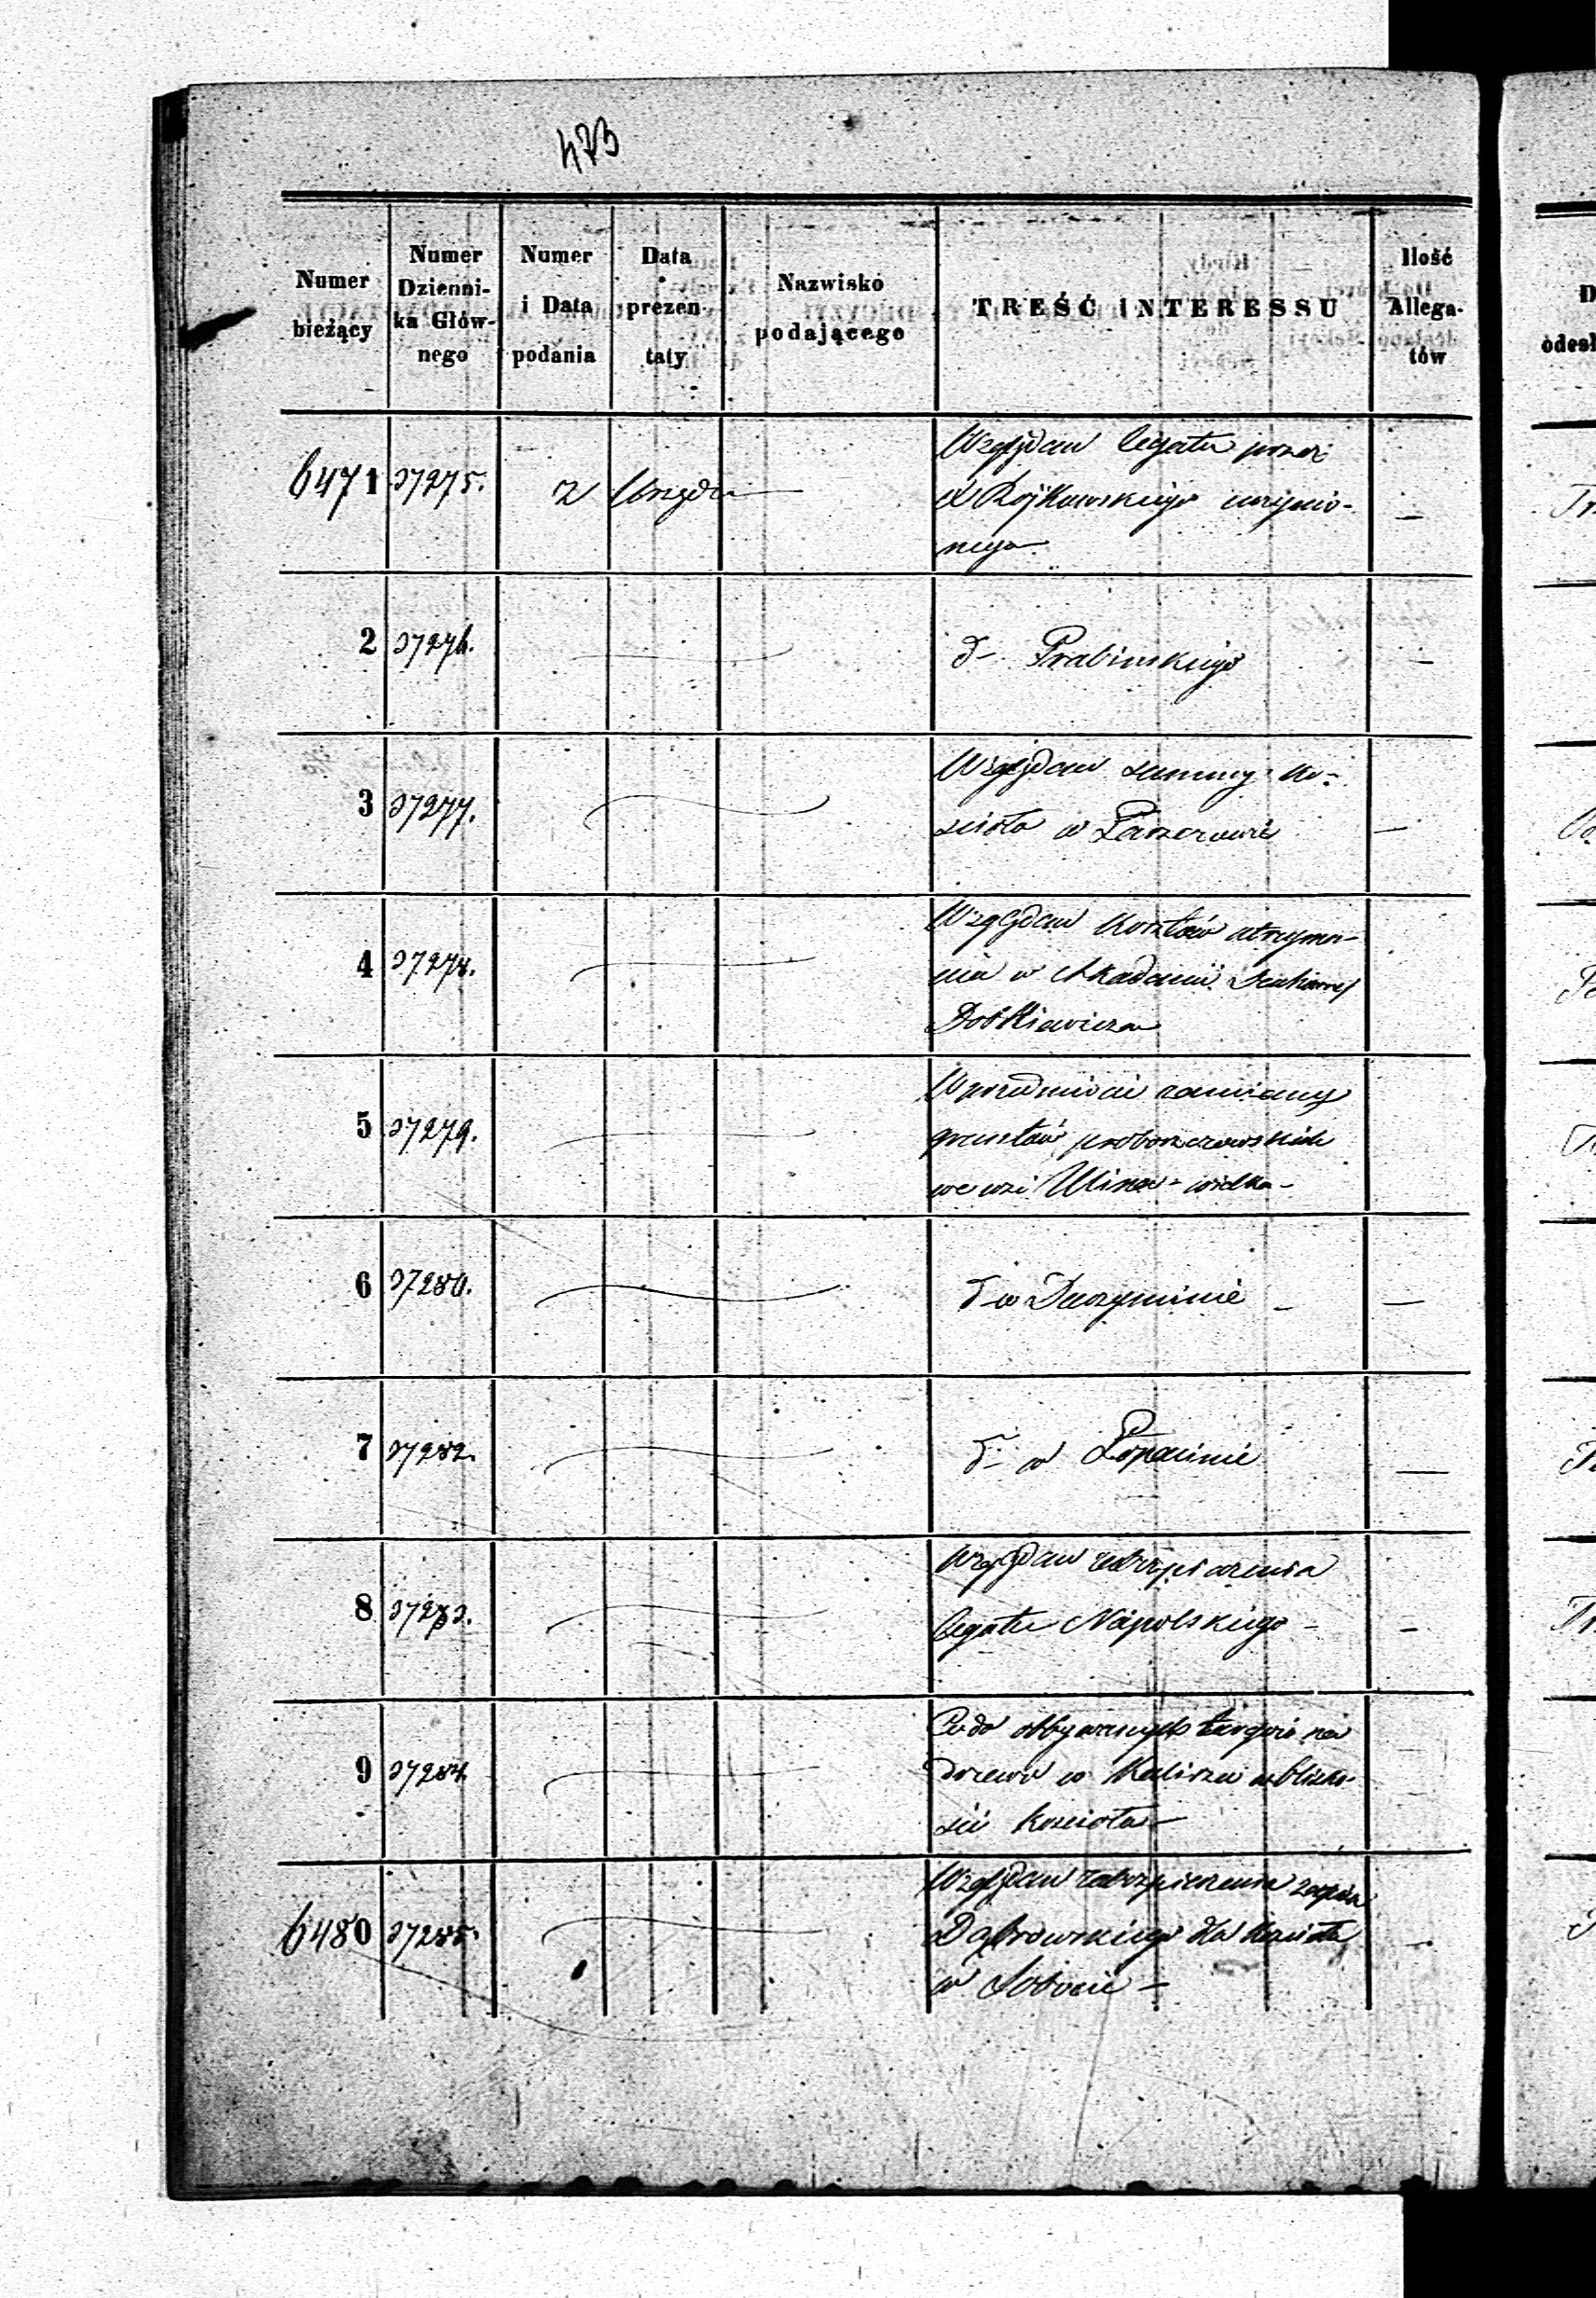 473
Numer bieżący | Numer Dzienni-ka Głów-nego | Numer i Data podania | Data prezen-taty | Nazwisko podającego | TREŚĆ INTERESSU | Ilość Allega-tów
6471 | 37275. | z Urzędu | Względem legatu przez
X Rojkowskiego uczynio-
nego
2 | 37276. | d- Prabinskiego
3 | 37277. | Względem summy ko-
scioła w
4 | 37278. | Względem kosztów utrzyma-
nia w Akademii Duchownej
Dobkiewicza
5 | 37279. | W przedmiocie zamiany
gruntów proboszczowskich
we wsi Ulina-wielka-
6 | 37280. | d- w
7 | 37282. | d- w Łopacinie
8 | 37283. | Względem zabezpieczenia
legatu Napolskiego -
9 | 37284 | Co do odbywanych targów na
drzewo w Kaliszu w blizko-
sci kościoła -
6480 | 37285. | Względem zabezpieczenia zapisu
Dąbrowskiego dla kościoła
w Sobocie -